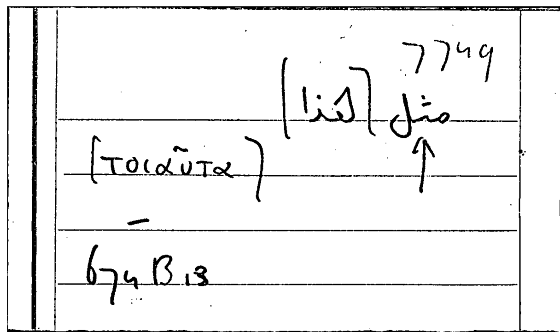 7749
مثل [هذا]
↑
[τοιαῦτα]
–
674 B 13